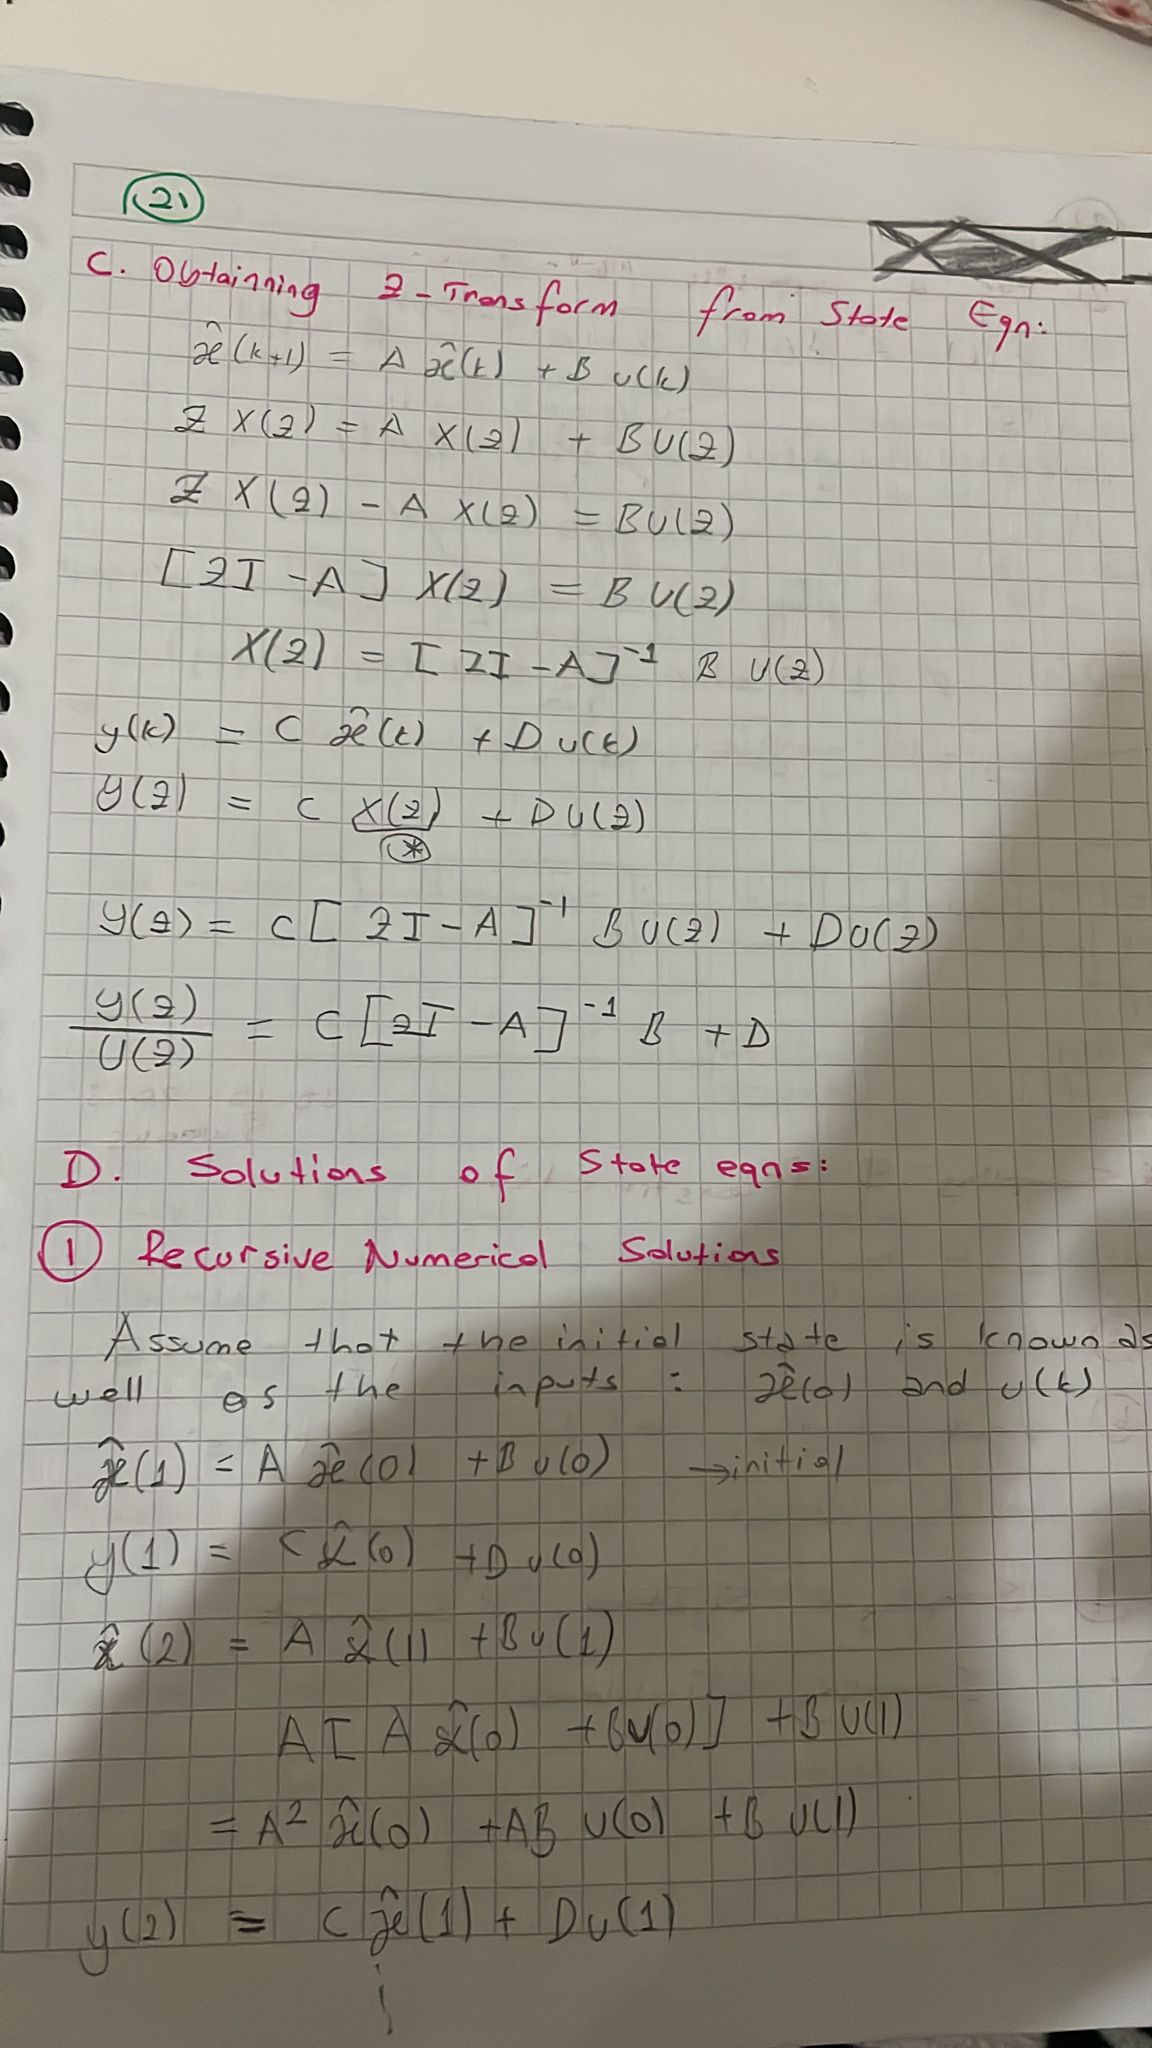 21
C. Obtainning Z-Transform from State Eqn:
x̂(k+1) = A x̂(k) + B u(k)
Z X(z) = A X(z) + B U(z)
Z X(z) - A X(z) = B U(z)
[ZI - A] X(z) = B U(z)
X(z) = [ZI - A]⁻¹ B U(z)
y(k) = C x̂(k) + D u(k)
Y(z) = C X(z) + D U(z)
*
Y(z) = C[ZI - A]⁻¹ B U(z) + D U(z)
Y(z)/U(z) = C[ZI - A]⁻¹ B + D
D. Solutions of State eqns:
1 Recursive Numerical Solutions
Assume that the initial state is known as
well as the inputs : x̂(0) and u(k)
x̂(1) = A x̂(0) + B u(0) → initial
y(1) = C x̂(0) + D u(0)
x̂(2) = A x̂(1) + B u(1)
A[A x̂(0) + B u(0)] + B u(1)
= A² x̂(0) + AB u(0) + B u(1)
y(2) = C x̂(1) + D u(1)